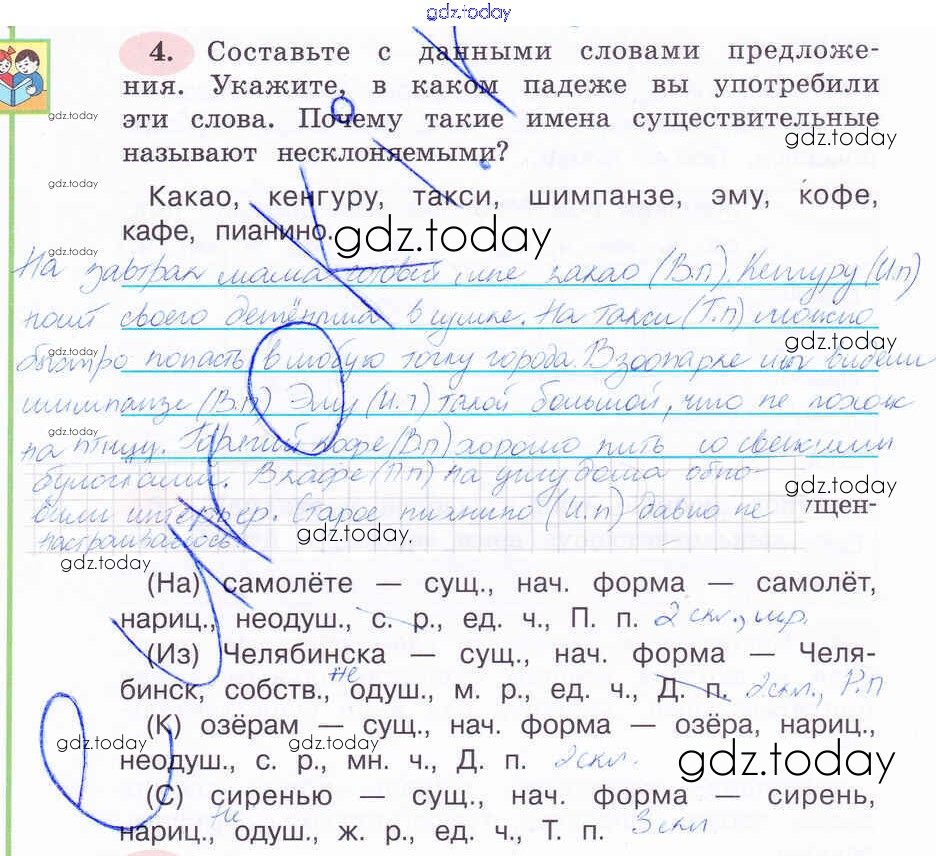 gdz.today
4. Составьте с данными словами предложе-
ния. Укажите, в каком падеже вы употребили
gdz.today
эти слова. Почему такие имена существительные
gdz.today
называют несклоняемыми?
gdz.today
Какао, кенгуру, такси, шимпанзе, эму, кофе,
кафе, пианино.
gdz.today
gdz.today
На завтрак мама готовит мне какао (В.п). Кенгуру (И.п)
поит своего детёныша в сумке. На такси (Т.п) можно
gdz.today
gdz.today
быстро попасть в любую точку города. В зоопарке мы видели
шимпанзе (В.п) Эму (И.п) такой большой, что не похож
gdz.today
на птицу. Горячий кофе (В.п) хорошо пить со свежими
булочками. В кафе (П.п) на углу дома обно-
gdz.today
вили интерьер. Старое пианино (И.п) давно не
ущен-
gdz.today
настраивалось.
gdz.today
(На) самолёте — сущ., нач. форма — самолёт,
нариц., неодуш., с. р., ед. ч., П. п. 2 скл., м.р.
(Из) Челябинска — сущ., нач. форма — Челя-
бинск, собств., не одуш., м. р., ед. ч., Д. п. 2 скл., Р.п
(К) озёрам — сущ., нач. форма — озёра, нариц.,
gdz.today
gdz.today
неодуш., с. р., мн. ч., Д. п. 2 скл.
gdz.today
(С) сиренью — сущ., нач. форма — сирень,
нариц., не одуш., ж. р., ед. ч., Т. п. 3 скл
gdz.today